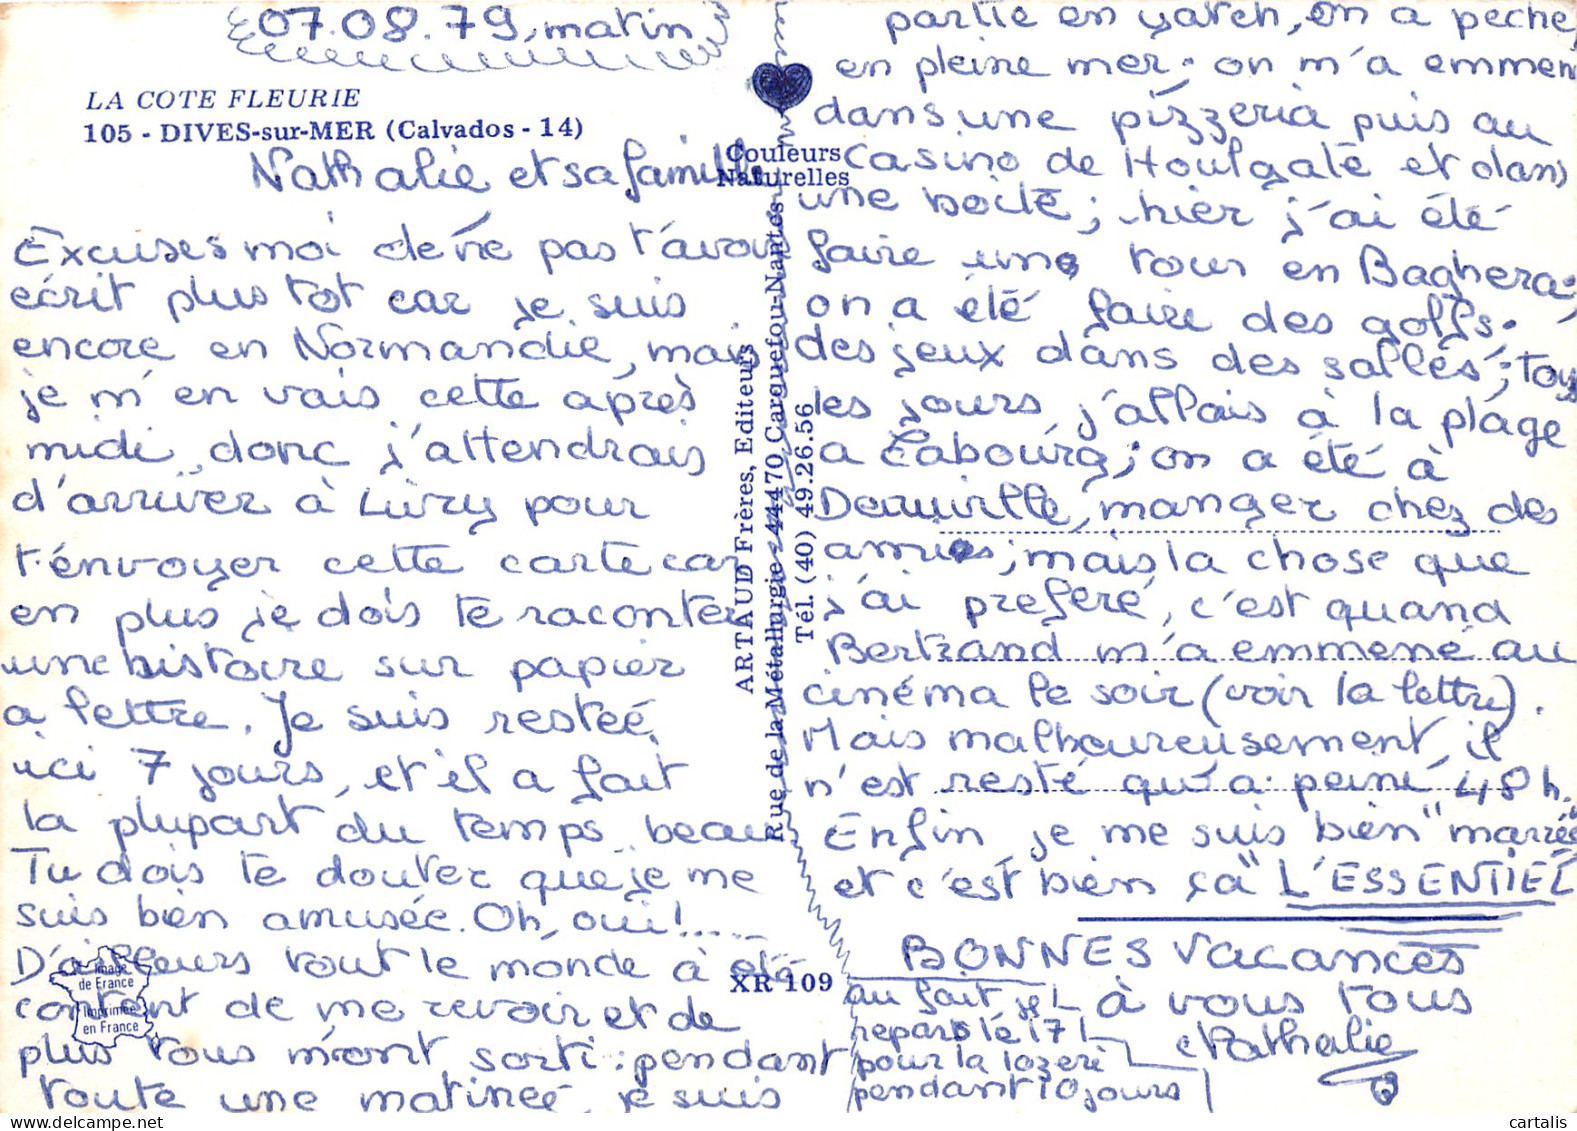 07.08.79, matin
LA COTE FLEURIE
105 - DIVES-sur-MER (Calvados - 14)
Nathalie et sa famille
Excuses moi de ne pas t'avoir
écrit plus tot car je suis
encore en Normandie, mais
je m'en vais cette après
midi, donc j'attendrais
d'arriver à Livry pour
t'envoyer cette carte car
en plus je dois te raconter
une histoire sur papier
a lettre. Je suis resteé
ici 7 jours, et il a fait
la plupart du temps beau
Tu dois te douter que je me
suis bien amusée. Oh, oui!.....
D'ailleurs tout le monde à été
content de me revoir et de
plus tous m'ont sorti : pendant
toute une matineé, je suis
Couleurs
Naturelles
ARTAUD Frères, Editeurs
Rue de la Métallurgie - 44470 Carquefou-Nantes
Tél. (40) 49.26.56
XR 109
Image
de France
Imprimée
en France
partie en yatch, on a peché
en pleine mer; on m'a emmené
dans une pizzeria puis au
Casino de Houlgate et dans
une boite; hier j'ai été
faire une tour en Baghera;
on a été faire des golfs;
des jeux dans des salles; tous
les jours j'allais à la plage
a Cabourg; on a été à
Deauville, manger chez des
amies; mais la chose que
j'ai preferé, c'est quand
Bertrand m'a emmené au
cinéma le soir (voir la lettre).
Mais malheureusement, il
n'est resté qu'a peine 48 h.
Enfin je me suis bien "marrée"
et c'est bien ça "L'ESSENTIEL
BONNES vacances
à vous tous
Nathalie
au fait je
repars le 17
pour la lozere
pendant 10 jours
cartalis.com